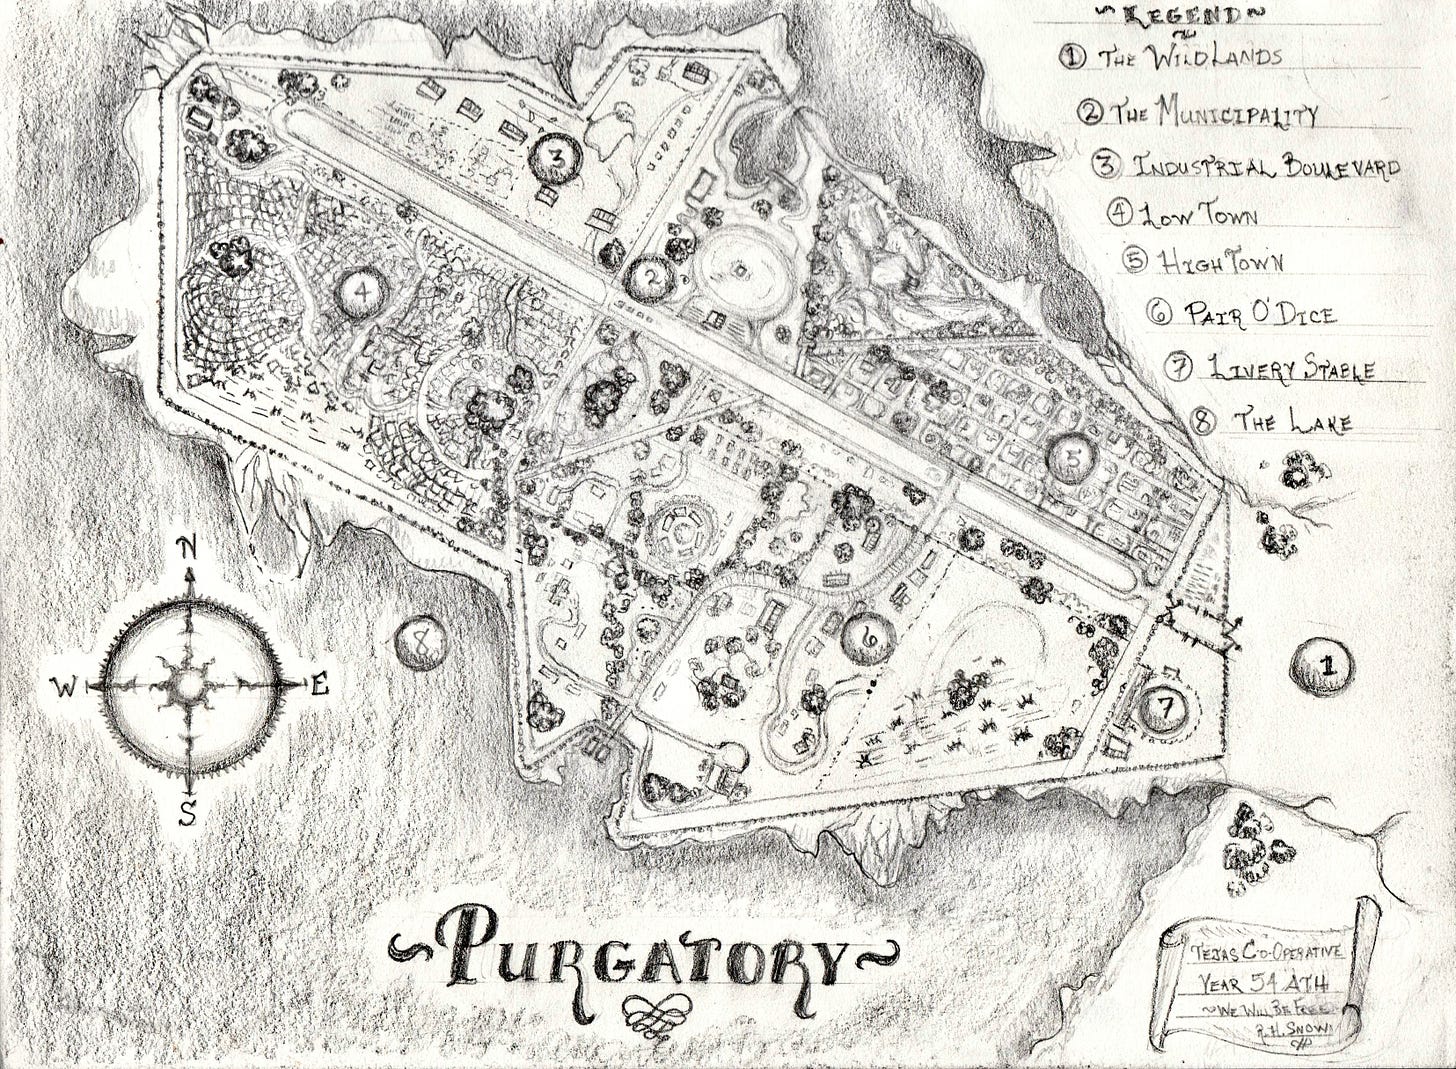 ~LEGEND~
1 THE WILDLANDS
2 THE MUNICIPALITY
3 INDUSTRIAL BOULEVARD
4 LOW TOWN
5 HIGH TOWN
6 PAIR O'DICE
7 LIVERY STABLE
8 THE LAKE
3
2
4
5
N
W E
S
8
6
1
7
~PURGATORY~
TEJAS CO-OPERATIVE
YEAR 54 ATH
~WE WILL BE FREE
R.H. SNOW